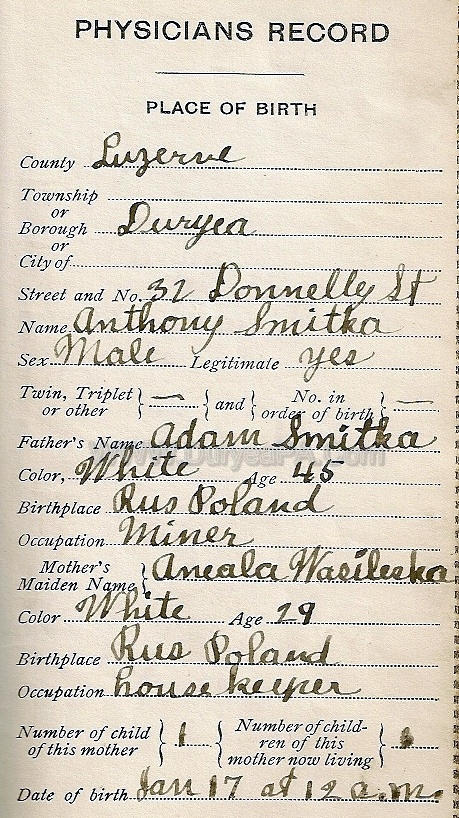 PHYSICIANS RECORD
PLACE OF BIRTH
County Luzerne
Township
or
Borough Duryea
or
City of
Street and No. 32 Donnelly St
Name Anthony Smitka
Sex Male Legitimate yes
Twin, Triplet or other } — { and { No. in order of birth } —
Father's Name Adam Smitka
Color, White Age 45
Birthplace Rus Poland
Occupation Miner
Mother's Maiden Name { Aneala Wasileska
Color White Age 29
Birthplace Rus Poland
Occupation housekeeper
Number of child of this mother } 1 { Number of child-ren of this mother now living } 1
Date of birth Jan 17 at 12 a.m.